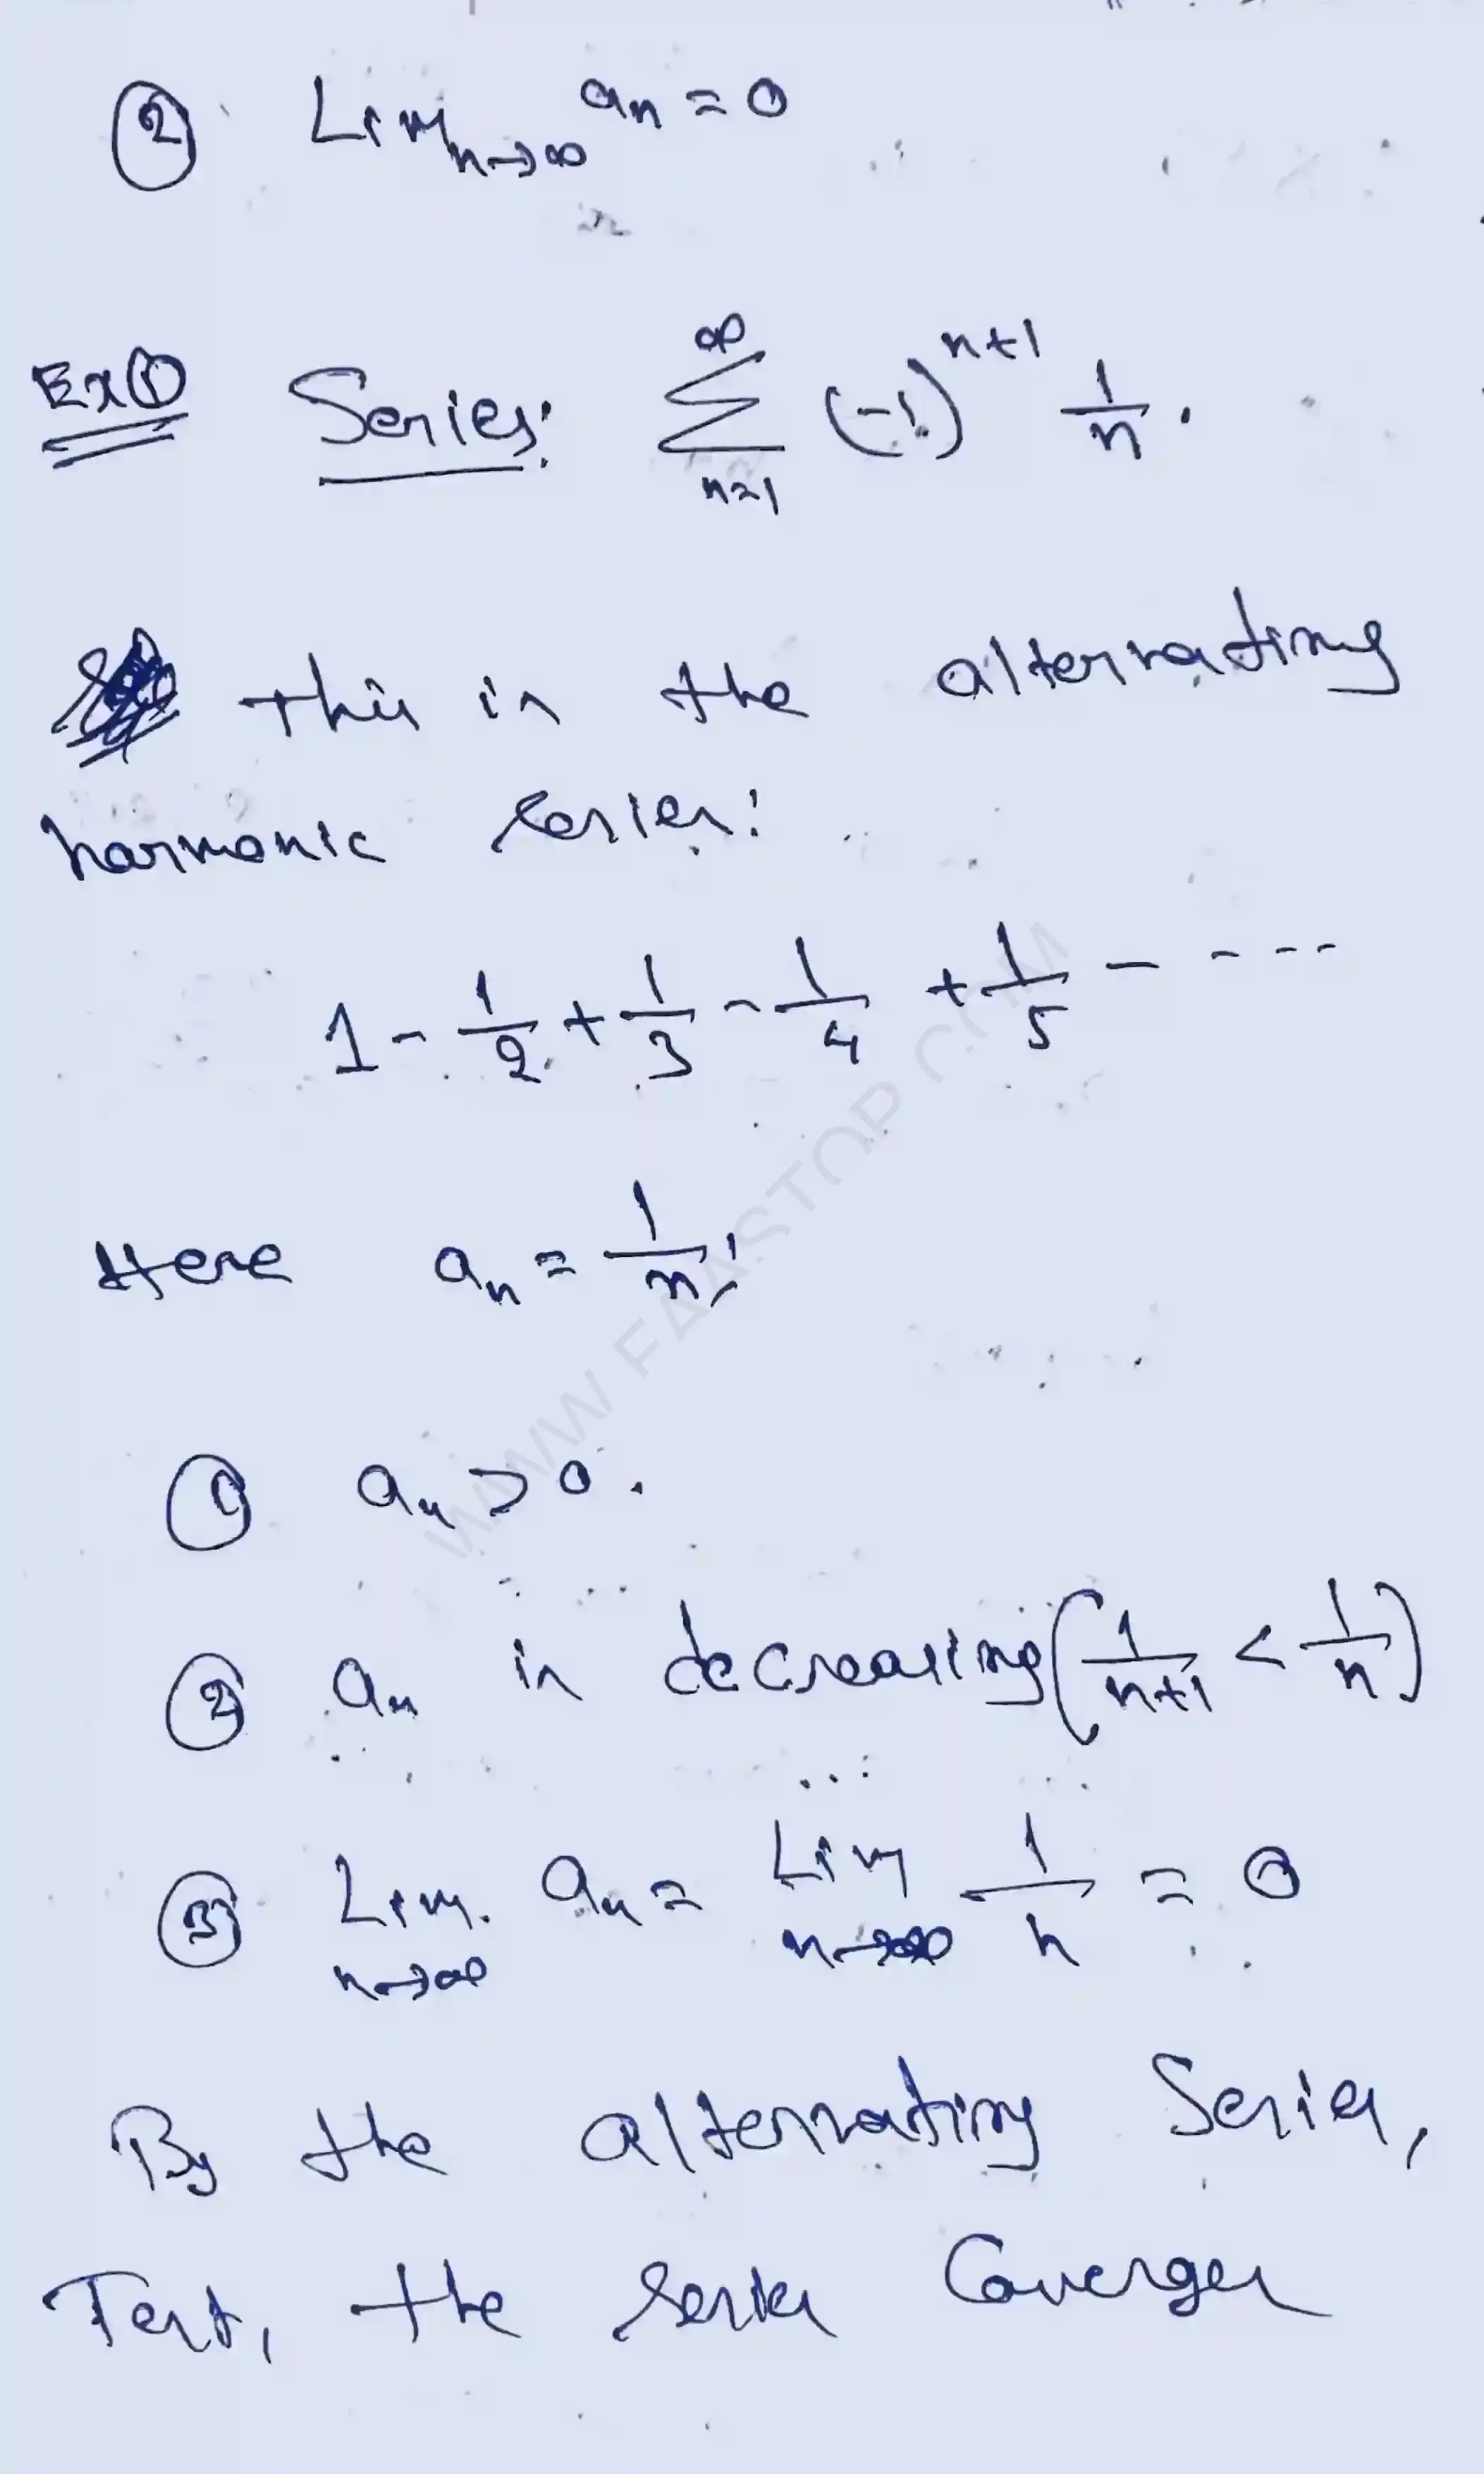 ② Lim n→∞ an = 0
Ex① Series: ∞ ∑ n=1 (-1)^n+1 1/n .
This is the alternating
harmonic series:
1 - 1/2 + 1/3 - 1/4 + 1/5 - - - - -
Here an = 1/n ;
① an > 0 .
② an is decreasing (1/n+1 < 1/n)
③ Lim. n→∞ an = Lim n→∞ 1/n = 0
By the alternating Series,
Test, the series Coverges
WWW.FAASTOP.COM